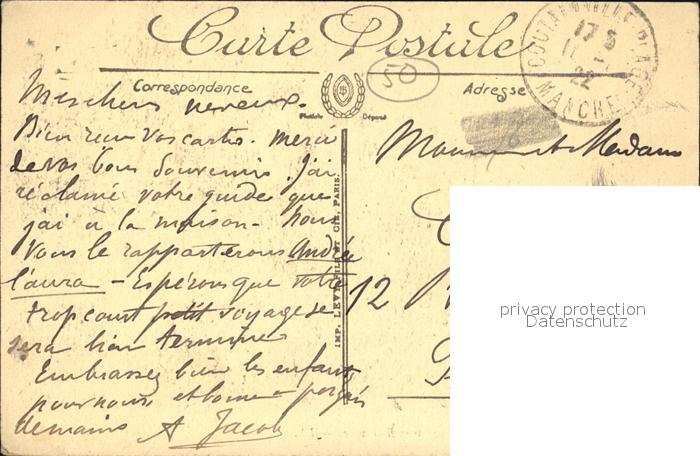 Carte Postale
Correspondance
Adresse
COUTAINVILLE PLAGE
17
22
MANCHE
50
Marque Déposé
Mes chers neveux.
Bien reçu vos cartes. Merci
de vos bons souvenirs. J'ai
réclamé votre guide que
j'ai à la maison - nous
vous le rapporterons Andrée
l'aura - Espérons que votre
trop court petit voyage se
sera bien terminé
Embrassez bien les enfants
pour nous et bonne poignée
de mains A Jacob
IMP. LEVY FILS ET CIE, PARIS.
Monsieur et Madame
12
privacy protection
Datenschutz